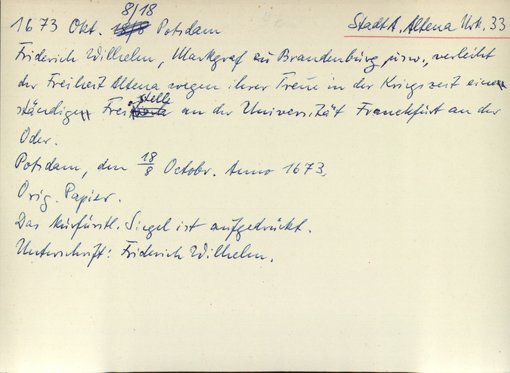 8/18
1673 Okt. Potsdam StadtA. Altena Urk. 33
Friderich Wilhelm, Markgraf zu Brandenburg usw., verleiht
der Freiheit Altena wegen ihrer Treue in der Kriegszeit eine
ständige Freistelle an der Universität Franckfurt an der
Oder.
Potsdam, den 18/8 Octobr. Anno 1673.
Orig. Papier.
Das kurfürstl. Siegel ist aufgedrückt.
Unterschrift: Friderich Wilhelm.